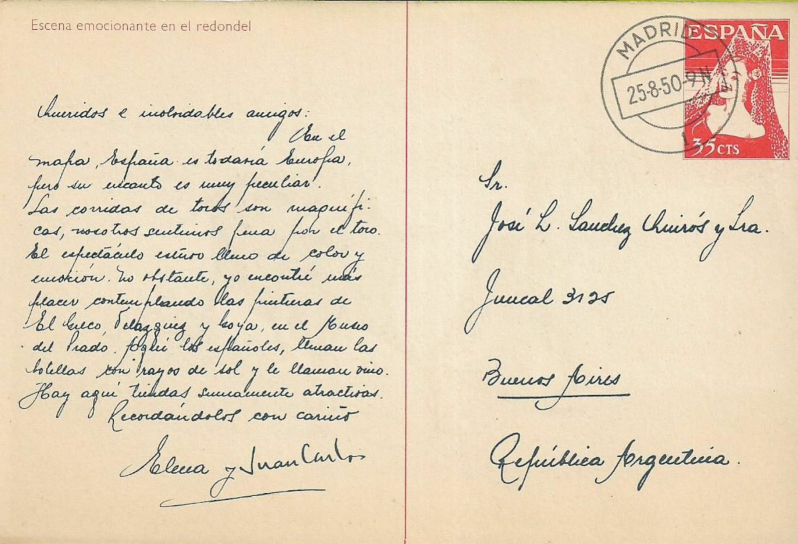 Escena emocionante en el redondel
Queridos e inolvidables amigos:
En el
mapa, España es todavía Europa,
pero su encanto es muy peculiar.
Las corridas de toros son magnífi-
cas, nosotros sentimos pena por el toro.
El espectáculo estuvo lleno de color y
emoción. No obstante, yo encontré más
placer contemplando las pinturas de
El Greco, Velazquez y Goya, en el Museo
del Prado. Aquí los españoles, llenan las
botellas con rayos de sol y le llaman vino.
Hay aquí tiendas sumamente atractivas.
Recordándolos con cariño
Elena y Juan Carlos
MADRID
25-8-50-9N
1
ESPAÑA
35 CTS
Sr.
José L. Sanchez Quirós y Sra.
Juncal 3125
Buenos Aires
República Argentina.